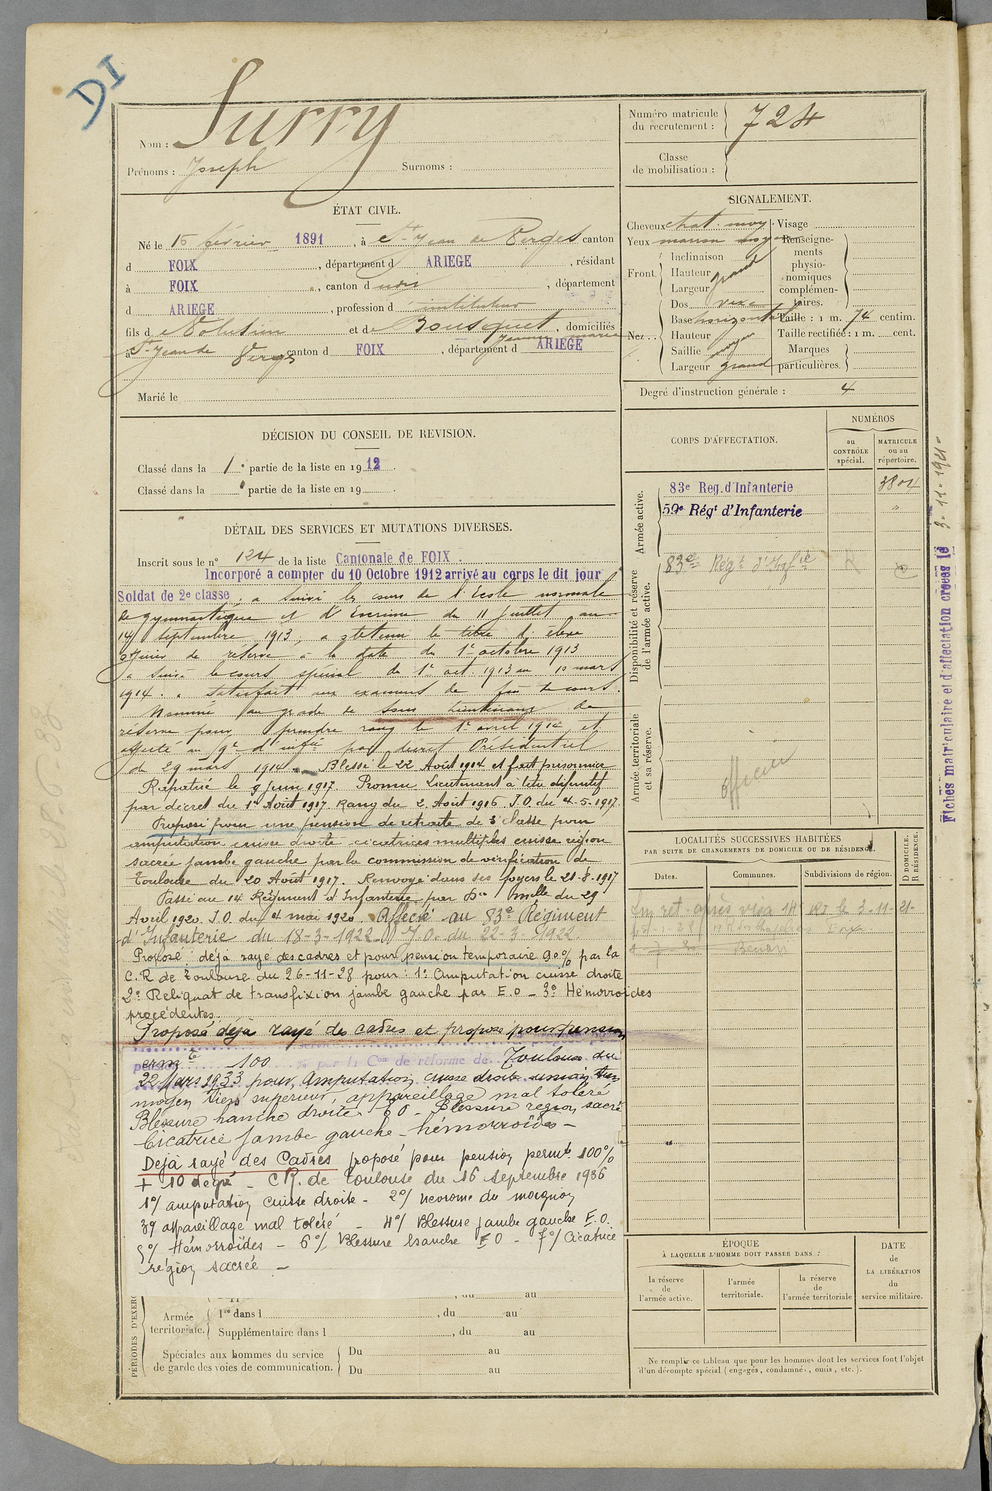 DI
Nom : Surry
Prénoms : Joseph Surnoms :
Numéro matricule du recrutement : 724
Classe de mobilisation :
ÉTAT CIVIL.
Né le 15 février 1891, à St Jean de Verges canton
d FOIX, département d ARIEGE, résidant
à FOIX, canton d dudit, département
d ARIEGE, profession d instituteur
fils d Volusien et de Bousquet Jeanne Marie, domiciliés
à St Jean de Verges canton d FOIX, département d ARIEGE
Marié le
SIGNALEMENT.
Cheveux chat. moy.
Yeux marron moyen
Front. Inclinaison
Hauteur grand
Largeur
Nez... Dos vexe
Base horizontal
Hauteur moyen
Saillie
Largeur grand
Visage
Renseignements physionomiques complémentaires.
Taille : 1 m. 74 centim.
Taille rectifiée : 1 m. cent.
Marques particulières.
Degré d'instruction générale : 4
DÉCISION DU CONSEIL DE REVISION.
Classé dans la 1e partie de la liste en 1912.
Classé dans la e partie de la liste en 19
CORPS D'AFFECTATION.
NUMÉROS
au CONTRÔLE spécial.
MATRICULE ou au répertoire.
Armée active.
83e Reg. d'Infanterie 3804
59e Régt d'Infanterie "
Disponibilité et réserve de l'armée active.
83e Régt d'Infie
Armée territoriale et sa réserve.
officier
DÉTAIL DES SERVICES ET MUTATIONS DIVERSES.
Inscrit sous le n° 124 de la liste Cantonale de FOIX.
Incorporé a compter du 10 Octobre 1912 arrivé au corps le dit jour
Soldat de 2e classe, a suivi les cours de l'école normale
de gymnastique et d'Escrime du 11 juillet au
14 septembre 1913, a obtenu le titre d'élève
officier de réserve à la date du 1er octobre 1913
a suivi le cours spécial du 1er oct 1913 au 10 mars
1914. a satisfait aux examens de fin de cours.
Nommé au grade de sous Lieutenant de
réserve pour prendre rang le 1er avril 1914 et
affecté au 9e d'infie par décret Présidentiel
du 29 mars 1914. Blessé le 22 Août 1914 et fait prisonnier
Rapatrié le 9 juin 1917. Promu Lieutenant à titre définitif
par décret du 1er Août 1917. Rang du 2 Août 1916. J.O. du 4-5-1917.
Proposé pour une pension de retraite de 3e classe pour
amputation cuisse droite cicatrices multiples cuisse région
sacrée jambe gauche par la commission de vérification de
Toulouse du 20 Août 1917. Renvoyé dans ses foyers le 21-8-1917
Passé au 14 Régiment d'Infanterie par Don Mlle du 29
Avril 1920 J.O. du 4 mai 1920. Affecté au 83e Régiment
d'Infanterie du 18-3-1922. J.O. du 22-3-1922.
Proposé déjà rayé des cadres et pour pension temporaire 90% par la
C.R de Toulouse du 26-11-28 pour : 1° Amputation cuisse droite
2° Reliquat de transfixion jambe gauche par E.O - 3° Hémorroïdes
précédentes.
Proposé déjà rayé des cadres et proposé pour pension
permte 100 % par la Con de réforme de Toulouse du
22 Mars 1933 pour Amputation cuisse droite
moyen tiers supérieur, appareillage mal toléré
Blessure hanche droite. EO - Blessure région sacrée
Cicatrice jambe gauche - hémorroïdes -
Déjà rayé des Cadres proposé pour pension permte 100%
+ 10 degré - CR. de Toulouse du 16 septembre 1936
1°/ amputation cuisse droite - 2°/ névrome du moignon
3°/ appareillage mal toléré - 4°/ Blessure jambe gauche E.O.
5°/ Hémorroïdes - 6°/ Blessure hanche EO - 7°/ Cicatrice
région sacrée -
LOCALITÉS SUCCESSIVES HABITÉES
PAR SUITE DE CHANGEMENTS DE DOMICILE OU DE RÉSIDENCE.
D DOMICILE, R RÉSIDENCE.
Dates. Communes. Subdivisions de région.
3-11-21
ÉPOQUE
À LAQUELLE L'HOMME DOIT PASSER DANS :
la réserve de l'armée active.
l'armée territoriale.
la réserve de l'armée territoriale
DATE de LA LIBÉRATION du service militaire.
PÉRIODES D'EXER
Armée territoriale.
au
1re dans l , du au
Supplémentaire dans l , du au
Spéciales aux hommes du service de garde des voies de communication.
Du au
Du au
Ne remplir ce tableau que pour les hommes dont les services font l'objet
d'un décompte spécial (engagés, condamnés, omis, etc.).
Fiches matriculaire et d'affectation créées le 3-11-1921